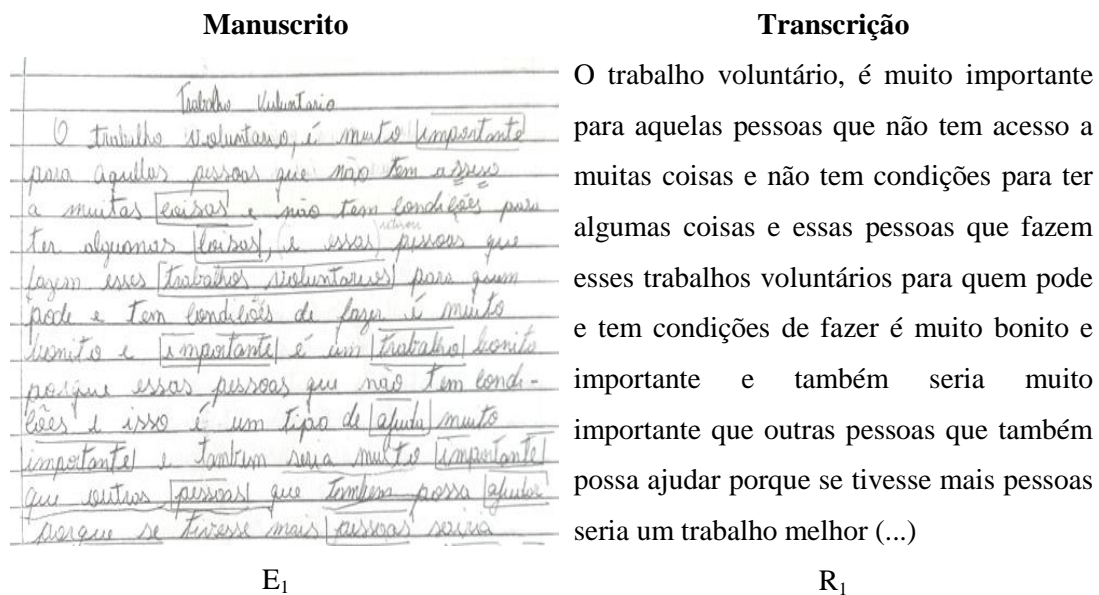 Manuscrito
Trabalho Vuluntario
O trabalho voluntario, é muito importante
para aquellas pessoas que não tem assesso
a muitas coisas e não tem condições para
ter algumas coisas, e essas pessoas que
fazem esses trabalhos voluntarios para quem
pode e tem condições de fazer é muito
bonito e importante é um trabalho bonito
porque essas pessoas que não tem condi-
ções e isso é um tipo de ajuda muito
importante e tambem seria muito importante
que outras pessoas que tambem possa ajudar
porque se tivesse mais pessoas seria
E1
Transcrição
O trabalho voluntário, é muito importante
para aquelas pessoas que não tem acesso a
muitas coisas e não tem condições para ter
algumas coisas e essas pessoas que fazem
esses trabalhos voluntários para quem pode
e tem condições de fazer é muito bonito e
importante e também seria muito
importante que outras pessoas que também
possa ajudar porque se tivesse mais pessoas
seria um trabalho melhor (...)
R1